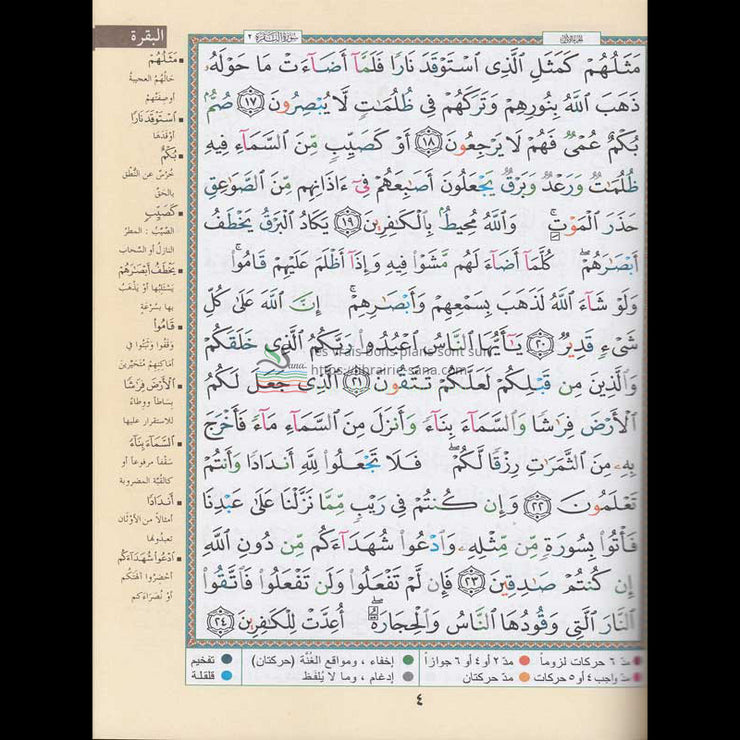 الجزء الأول
سورة البقرة ٢
البقرة
مَثَلُهُمْ كَمَثَلِ ٱلَّذِى ٱسْتَوْقَدَ نَارًا فَلَمَّآ أَضَآءَتْ مَا حَوْلَهُۥ
ذَهَبَ ٱللَّهُ بِنُورِهِمْ وَتَرَكَهُمْ فِى ظُلُمَٰتٍ لَّا يُبْصِرُونَ ١٧ صُمٌّۢ
بُكْمٌ عُمْىٌ فَهُمْ لَا يَرْجِعُونَ ١٨ أَوْ كَصَيِّبٍ مِّنَ ٱلسَّمَآءِ فِيهِ
ظُلُمَٰتٌ وَرَعْدٌ وَبَرْقٌ يَجْعَلُونَ أَصَٰبِعَهُمْ فِىٓ ءَاذَانِهِم مِّنَ ٱلصَّوَٰعِقِ
حَذَرَ ٱلْمَوْتِ ۚ وَٱللَّهُ مُحِيطٌۢ بِٱلْكَٰفِرِينَ ١٩ يَكَادُ ٱلْبَرْقُ يَخْطَفُ
أَبْصَٰرَهُمْ ۖ كُلَّمَآ أَضَآءَ لَهُم مَّشَوْا۟ فِيهِ وَإِذَآ أَظْلَمَ عَلَيْهِمْ قَامُوا۟ ۚ
وَلَوْ شَآءَ ٱللَّهُ لَذَهَبَ بِسَمْعِهِمْ وَأَبْصَٰرِهِمْ ۚ إِنَّ ٱللَّهَ عَلَىٰ كُلِّ
شَىْءٍ قَدِيرٌ ٢٠ يَٰٓأَيُّهَا ٱلنَّاسُ ٱعْبُدُوا۟ رَبَّكُمُ ٱلَّذِى خَلَقَكُمْ
وَٱلَّذِينَ مِن قَبْلِكُمْ لَعَلَّكُمْ تَتَّقُونَ ٢١ ٱلَّذِى جَعَلَ لَكُمُ
ٱلْأَرْضَ فِرَٰشًا وَٱلسَّمَآءَ بِنَآءً وَأَنزَلَ مِنَ ٱلسَّمَآءِ مَآءً فَأَخْرَجَ
بِهِۦ مِنَ ٱلثَّمَرَٰتِ رِزْقًا لَّكُمْ ۖ فَلَا تَجْعَلُوا۟ لِلَّهِ أَندَادًا وَأَنتُمْ
تَعْلَمُونَ ٢٢ وَإِن كُنتُمْ فِى رَيْبٍ مِّمَّا نَزَّلْنَا عَلَىٰ عَبْدِنَا
فَأْتُوا۟ بِسُورَةٍ مِّن مِّثْلِهِۦ وَٱدْعُوا۟ شُهَدَآءَكُم مِّن دُونِ ٱللَّهِ
إِن كُنتُمْ صَٰدِقِينَ ٢٣ فَإِن لَّمْ تَفْعَلُوا۟ وَلَن تَفْعَلُوا۟ فَٱتَّقُوا۟
ٱلنَّارَ ٱلَّتِى وَقُودُهَا ٱلنَّاسُ وَٱلْحِجَارَةُ ۖ أُعِدَّتْ لِلْكَٰفِرِينَ ٢٤
مَثَلُهُمْ
حَالُهُمُ العجيبةُ
أو صِفَتُهم
اسْتَوْقَدَ نَارًا
أوْقَدَها
بُكْمٌ
خُرْسٌ عن النُّطْقِ
بالحَقِّ
كَصَيِّبٍ
الصَّيِّبُ : المطرُ
النازلُ أو السَّحَابُ
يَخْطَفُ أَبْصَارَهُمْ
يَسْتَلِبُها أوْ يَذْهَبُ
بها بسُرْعَةٍ
قَامُوا
وقَفُوا وثَبَتُوا في
أماكِنِهِم مُتَحَيِّرينَ
الْأَرْضَ فِرَاشًا
بِسَاطًا ووِطَاءً
للاستقرارِ عليها
السَّمَاءَ بِنَاءً
سَقْفًا مرفوعًا أو
كالقُبَّةِ المضروبةِ
أَنْدَادًا
أمثالًا من الأوْثَانِ
تعبدُونَها
ادْعُوا شُهَدَاءَكُم
أحْضِرُوا آلِهَتَكُم
أو نُصَرَاءَكم
les vrais bons plans sont sur
Sana
https://librairie-sana.com
مدّ ٦ حركات لزوماً مدّ ٢ أو ٤ أو ٦ جوازاً إخفاء ، ومواقع الغُنَّة (حركتان) تفخيم
مدّ واجب ٤ أو ٥ حركات مدّ حركتان إدغام ، وما لا يُلفَظ قلقلة
٤